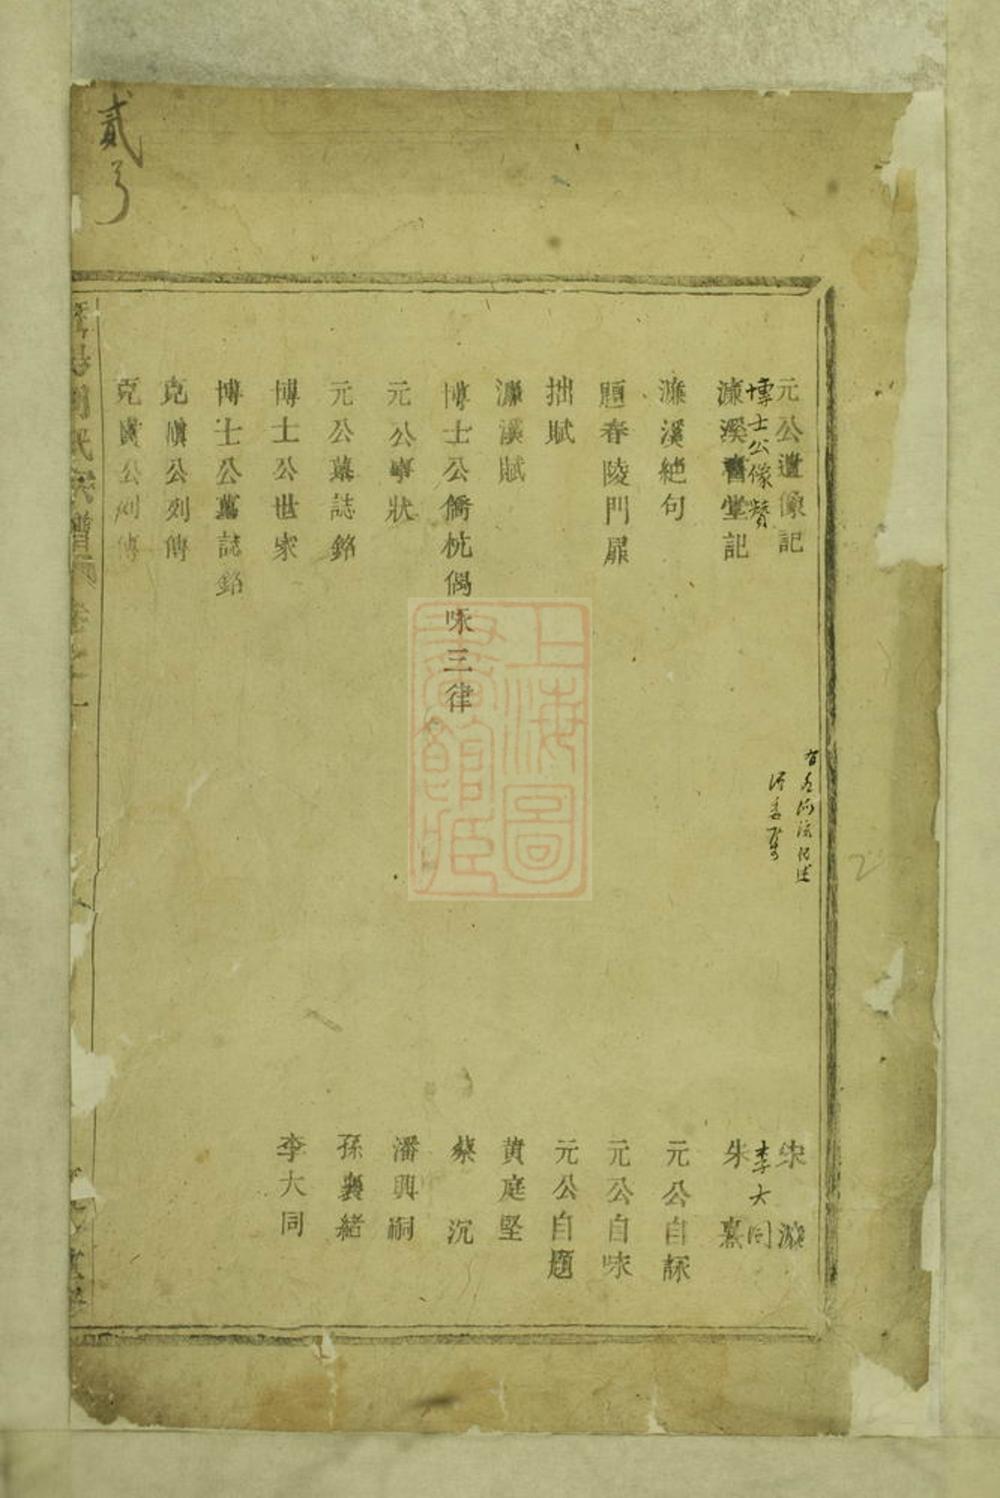 貳
元公遺像記 宋濂
博士公像贊 李大同
濂溪書堂記 朱熹
濂溪絕句 元公自詠
題春陵門扉 元公自咏
拙賦 元公自題
濂溪賦 黄庭堅
博士公僑杭偶咏三律 蔡沉
元公事狀 潘興嗣
元公墓誌銘 孫襄緒
博士公世家 李大同
博士公墓誌銘
克慎公列傳
克寶公列傳
上海圖書館藏